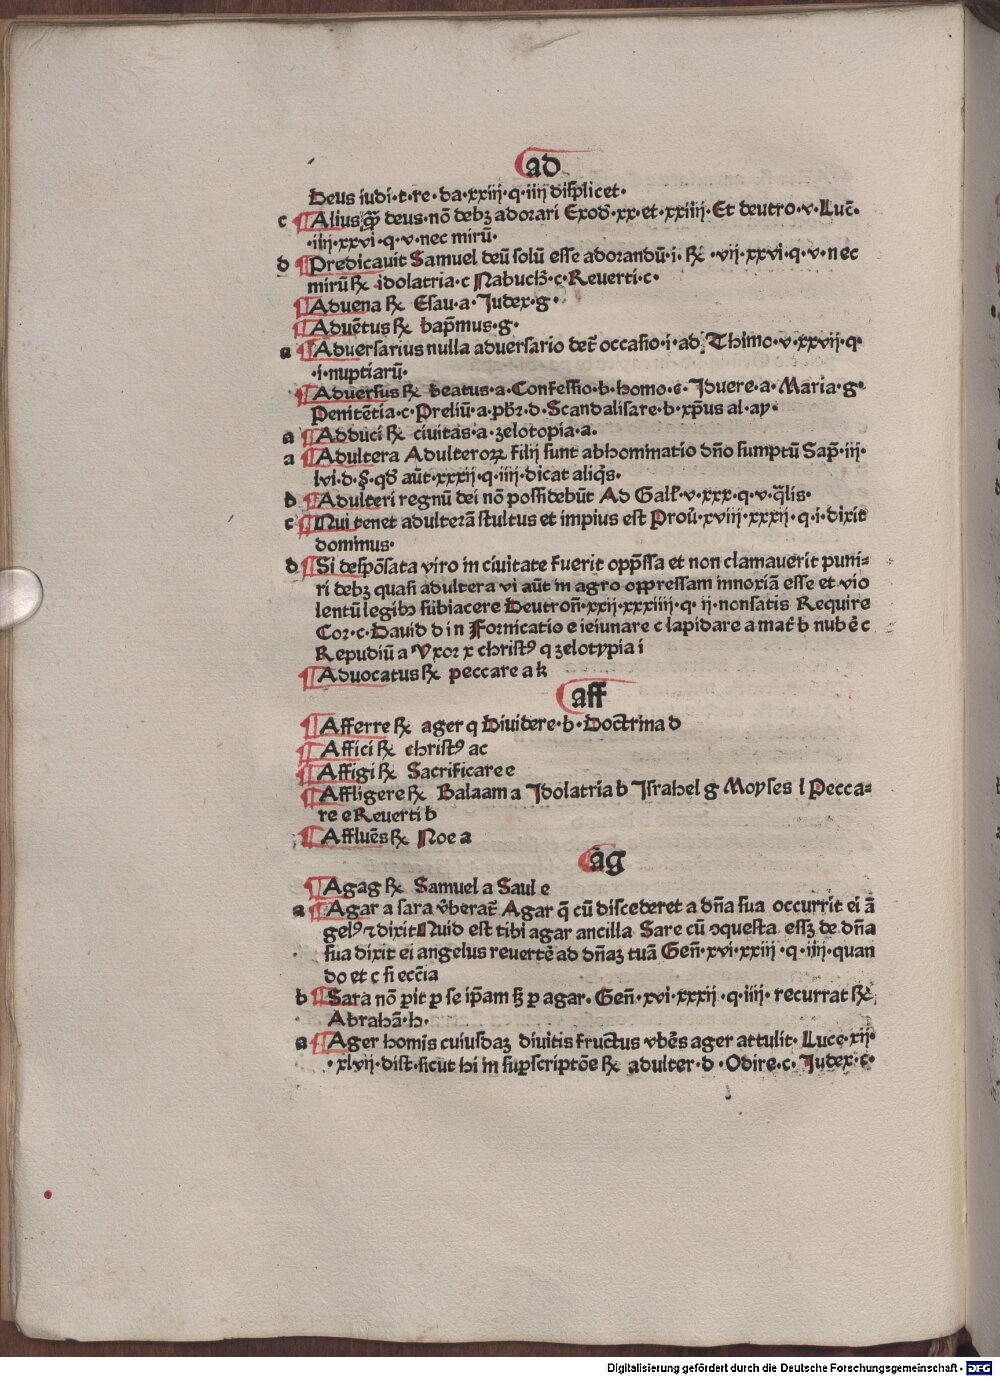 ad
Deus iudi·t·re·da·xxiij·q·iiij displicet·
c ¶Alius qȝ deus·nō debȝ adorari Exod̄·xx·et·xxiiij·Et deutro·v·Luc̄·
·iiij·xxvi·q·v·nec mirū·
d ¶Predicauit Samuel deū solū esse adorandū·i·℞·vij·xxvi·q·v·nec
mirū ℞ idolatria·c Nabuch̄·c·Reuerti·c·
¶Aduena ℞ Esau·a·Judex·g·
¶Aduētus ℞ bap̄mus·g·
a ¶Aduersarius nulla aduersario det̄ occasio·i·ad Thimo·v·xxvij·q·
·i·nuptiarū·
¶Aduersus ℞ beatus·a·Confessio·b·homo·s·Iduere·a·Maria·g·
Penitētia·c·Preliū·a·pb̄r·d·Scandalisare·b·xp̄us al·ay·
a ¶Adduci ℞ ciuitas·a·zelotopia·a·
a ¶Adultera Adulteroꝝ filij sunt abhominatio dn̄o sumptū Sap̄·iij·
lvi·d·§·qd̄ aūt·xxxij·q·iiij·dicat aliq̄s·
b ¶Adulteri regnū dei nō possidebūt Ad Gall̄·v·xxx·q·v·q̄lis·
c ¶Nui tenet adulterā stultus et impius est Prou̇·xviij·xxxij·q·i·dixit
dominus·
d ¶Si despōsata viro in ciuitate fuerit opp̄ssa et non clamauerit puni-
ri debȝ quasi adultera vi aūt in agro oppressam innoxiā esse et vio
lentū legibȝ subiacere Deutron̄·xxij·xxxiiij·q·ij·nonsatis Require
Cor·c·Dauid d i n Fornicatio e ieiunare c lapidare a mat̄ b nubē c
Repudiū a Vxor x christꝰ q zelotypia i
¶Aduocatus ℞ peccare a k
aff
¶Afferre ℞ ager q Diuidere·b·Doctrina d
¶Affici ℞ christꝰ ac
¶Affigi ℞ Sacrificare e
¶Affligere ℞ Balaam a Jdolatria b Jsrahel g Moyses l Pecca-
re e Reuerti b
¶Affluēs ℞ Noe a
ag
¶Agag ℞ Samuel a Saul e
a ¶Agar a sara v̄berat̄ Agar q̄ cū discederet a dn̄a sua occurrit ei ā
gelꝰ ⁊ dixit Nuid est tibi agar ancilla Sare cū ꝯquesta essȝ de dn̄a
sua dixit ei angelus reuertē ad dn̄aȝ tuā Gen̄·xvi·xxiij·q·iiij·quan
do et c si ecc̄ia
b ¶Sara nō ꝑit ꝑ se ip̄am sȝ ꝑ agar·Gen̄·xvi·xxxij·q·iiij·recurrat ℞
Abrahā·h·
a ¶Ager homis cuiusdaȝ diuitis fructus vbēs ager attulit·Luce·xij·
·xlvij·dist·sicut hi in suꝑscriptōe ℞ adulter·d·Odire·c·Judex·c·
Digitalisierung gefördert durch die Deutsche Forschungsgemeinschaft - DFG